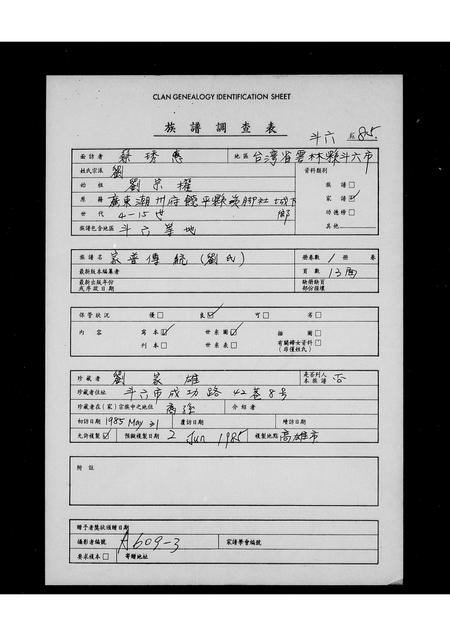 CLAN GENEALOGY IDENTIFICATION SHEET
族譜調查表
斗六 85.
面訪者 蔡琇惠 地區 台灣省雲林縣斗六市
姓氏宗派 劉 資料類別
始祖 劉宗權 族譜□
原籍 廣東潮州府饒平縣 社坡下 家譜☑
世代 4-15世 鄉 功德榜□
族譜包含地區 斗六等地 其他
族譜名 家普傳統(劉氏) 冊卷數 1 冊 卷
最新版本編纂者 頁數 13張
最新出版年份或序跋日期 缺冊缺頁部份損壞
保管狀況 優□ 良☑ 可□ 劣□
內容 寫本☑ 世系圖☑ 插圖□
刊本□ 世系表□ 有關婦女資料□(非僅姓氏)
珍藏者 劉家雄 是否列入本族譜 否
珍藏者住址 斗六市成功路42巷8号
珍藏者在(家)宗族中之地位 裔孫 介紹者
初訪日期 1985 May 31 覆訪日期 續訪日期
允許複製☑ 預擬複製日期 2 Jun 1985 複製地點 高雄市
附註
贈予者獎狀頒贈日期
攝影者編號 A609-3 家譜學會編號
要求複本□ 寄贈地址